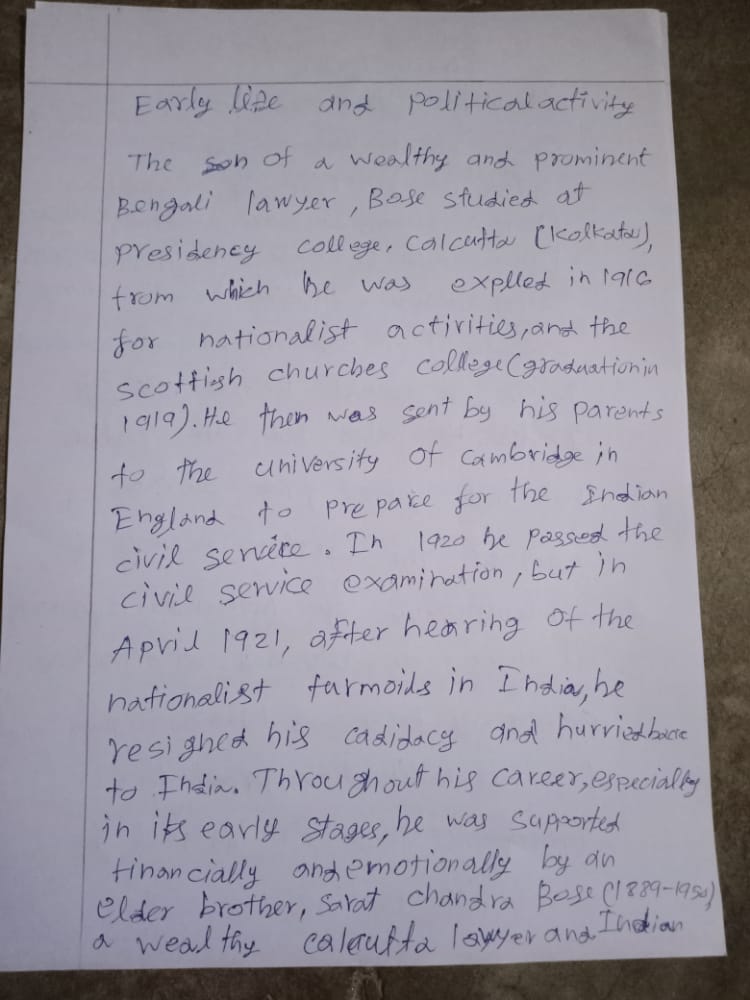 Early life and political activity
The son of a wealthy and prominent
Bengali lawyer, Base studied at
presidency college, calcutta (Kolkata),
from which he was explled in 1916
for nationalist activities, and the
scottish churches college (graduation in
1919). He then was sent by his parents
to the university of cambridge in
England to prepare for the Indian
civil service. In 1920 he passed the
civil service examination, but in
April 1921, after hearing of the
nationalist turmoids in India, he
resigned his cadidacy and hurried back
to India. Throughout his career, especially
in its early stages, he was supported
financially and emotionally by an
elder brother, sarat chandra Base (1889-1950)
a wealthy calcutta lawyer and Indian